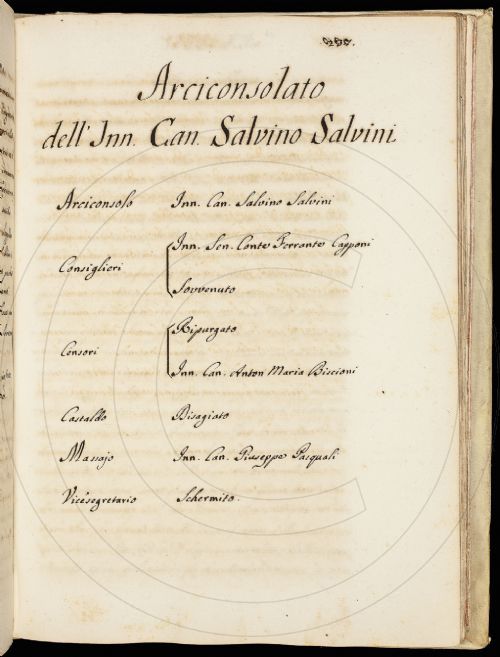 Arciconsolato
dell' Inn. Can. Salvino Salvini
Arciconsolo Inn. Can. Salvino Salvini
Consiglieri
Inn. Sen. Conte Ferrante Capponi
Sovvenuto
Censori
Ripurgato
Inn. Can. Anton Maria Biscioni
Castaldo Disagiato
Massajo Inn. Can. Giuseppe Pasquali
Vicesegretario Schermito.